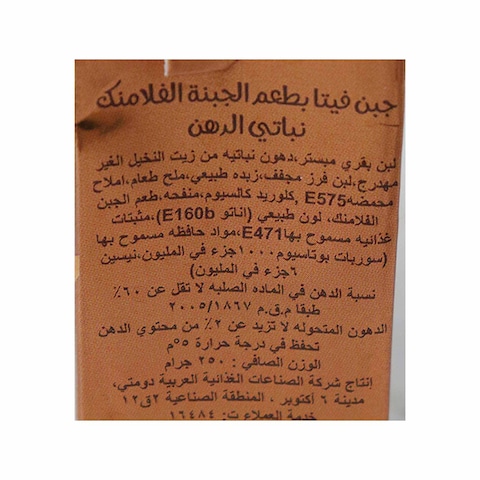 جبن فيتا بطعم الجبنة الفلامنك
نباتي الدهن
لبن بقري مبستر،دهون نباتيه من زيت النخيل الغير
مهدرج،لبن فرز مجفف،زبده طبيعي،ملح طعام،املاح
محمضه E575،كلوريد كالسيوم،منفحه،طعم الجبن
الفلامنك، لون طبيعي (اناتو E160b)،مثبتات
غذائيه مسموح بهاE471،مواد حافظه مسموح بها
(سوربات بوتاسيوم١٠٠٠جزء في المليون،نيسين
٦جزء في المليون)
نسبة الدهن في الماده الصلبه لا تقل عن ٦٠٪
طبقا م.ق.م ٢٠٠٥/١٨٦٧
الدهون المتحوله لا تزيد عن ٢٪ من محتوي الدهن
تحفظ في درجة حرارة ٥°م
الوزن الصافي : ٢٥٠ جرام
إنتاج شركة الصناعات الغذائية العربية دومتي،
مدينة ٦ أكتوبر ، المنطقة الصناعية ٢ق١٢
خدمة العملاء ت: ١٦٤٨٤